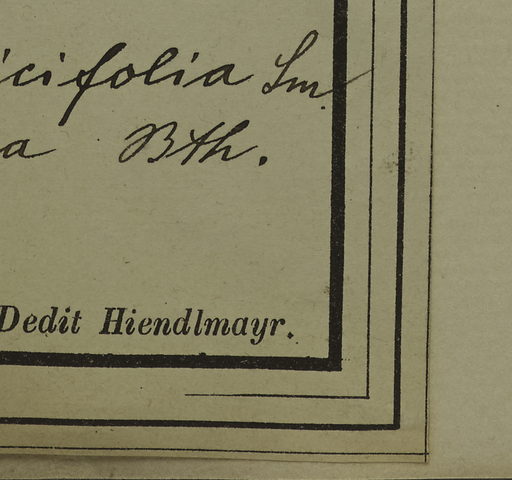 icifolia Sm.
a Bth.
Dedit Hiendlmayr.